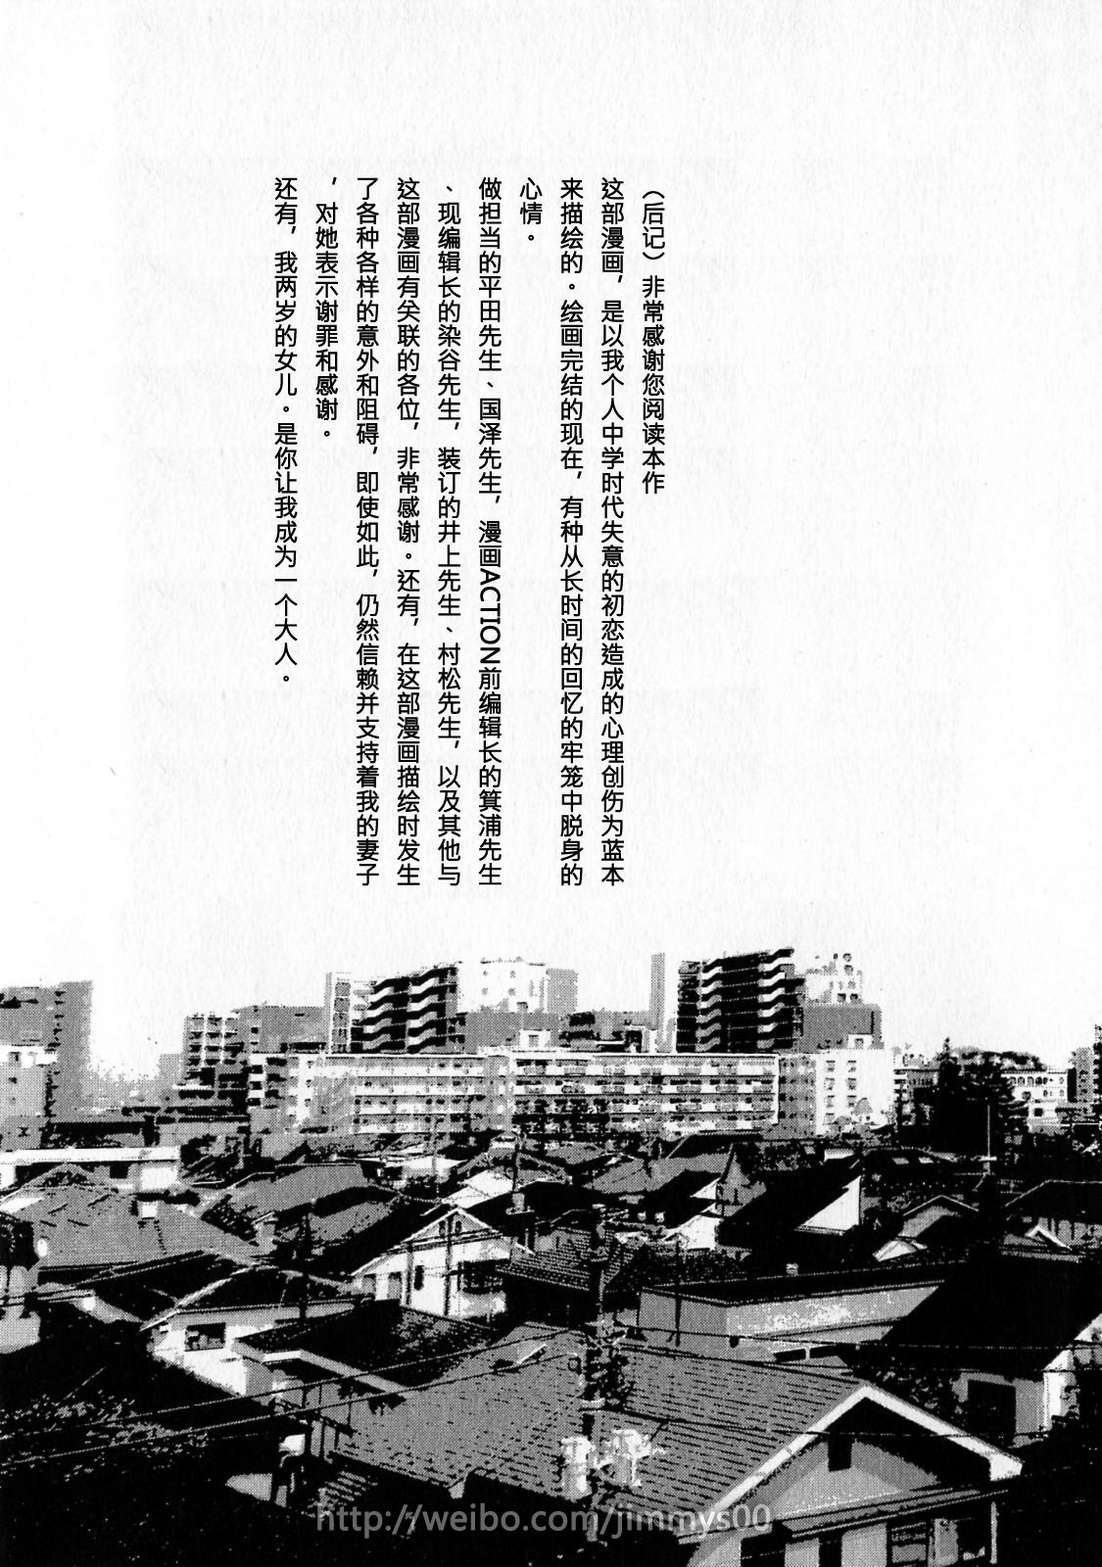 （后记）非常感谢您阅读本作
这部漫画，是以我个人中学时代失意的初恋造成的心理创伤为蓝本
来描绘的。绘画完结的现在，有种从长时间的回忆的牢笼中脱身的
心情。
做担当的平田先生、国泽先生，漫画ACTION前编辑长的箕浦先生
、现编辑长的染谷先生，装订的井上先生、村松先生，以及其他与
这部漫画有关联的各位，非常感谢。还有，在这部漫画描绘时发生
了各种各样的意外和阻碍，即使如此，仍然信赖并支持着我的妻子
，对她表示谢罪和感谢.
还有，我两岁的女儿。是你让我成为一个大人。
http://weibo.com/jimmys00